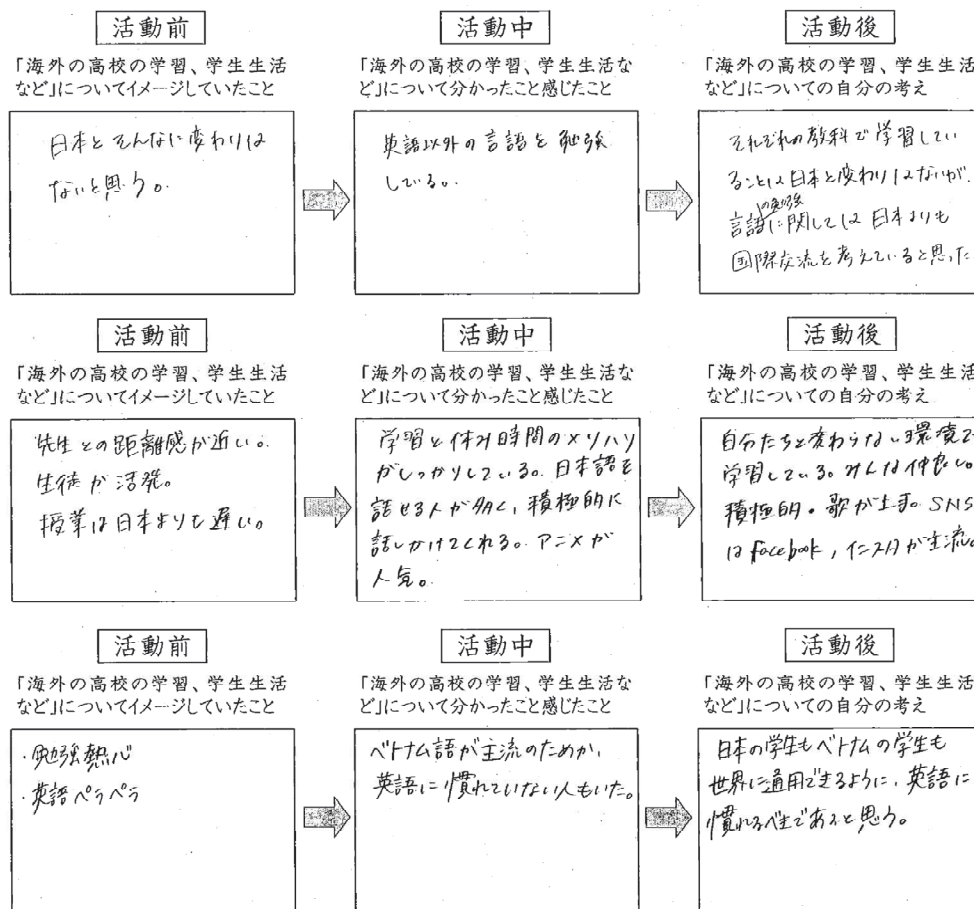 活動前
「海外の高校の学習、学生生活
など」についてイメージしていたこと
日本とそんなに変わりは
ないと思う。
活動中
「海外の高校の学習、学生生活な
ど」について分かったこと感じたこと
英語以外の言語を勉強
している。
活動後
「海外の高校の学習、学生生活
など」についての自分の考え
それぞれの教科で学習してい
ることは日本と変わりはないが、
の勉強
言語に関しては日本よりも
国際交流を考えていると思った
活動前
「海外の高校の学習、学生生活
など」についてイメージしていたこと
先生との距離感が近い。
生徒が活発。
授業は日本よりも遅い。
活動中
「海外の高校の学習、学生生活な
ど」について分かったこと感じたこと
学習と休み時間のメリハリ
がしっかりしている。日本語を
話せる人が多く、積極的に
話しかけてくれる。アニメが
人気。
活動後
「海外の高校の学習、学生生活
など」についての自分の考え
自分たちと変わらない環境で
学習している。みんな仲良し。
積極的。歌が上手。SNS
はfacebook，インスタが主流。
活動前
「海外の高校の学習、学生生活
など」についてイメージしていたこと
・勉強熱心
・英語ペラペラ
活動中
「海外の高校の学習、学生生活な
ど」について分かったこと感じたこと
ベトナム語が主流のためか、
英語に慣れていない人もいた。
活動後
「海外の高校の学習、学生生活
など」についての自分の考え
日本の学生もベトナムの学生も
世界に通用できるように、英語に
慣れるべきであると思う。